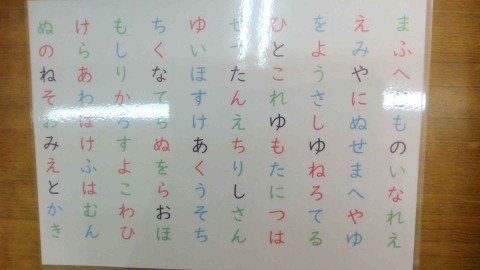 まふへ こものいなれえ
えみやにぬせまへやゆ
をようさしゆねろてる
ひとこれゆもたにつは
せ たんえちりしさん
ゆいほすけあくうそち
ちくなてらぬをらおほ
もしりからすよこわひ
けらあわはけふはむん
ぬのねそおみえとかき